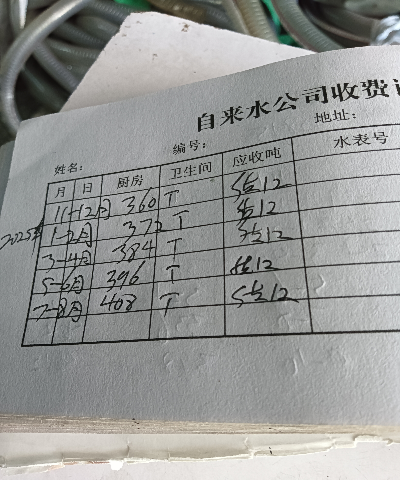 自来水公司收费
姓名： 编号： 地址：
月 日 厨房 卫生间 应收吨 水表号
11-12月 360 T 12
2025年 1-2月 372 T 12
3-4月 384 T 12
5-6月 396 T 12
7-8月 408 T 12